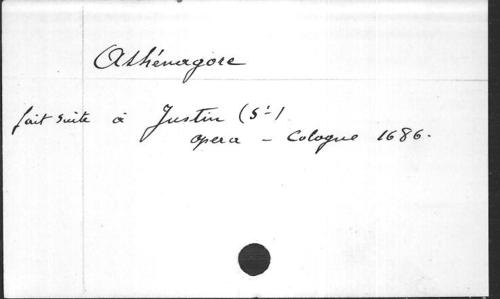 Athénagore
fait suite à Justin (St)
opera - Cologne 1686.